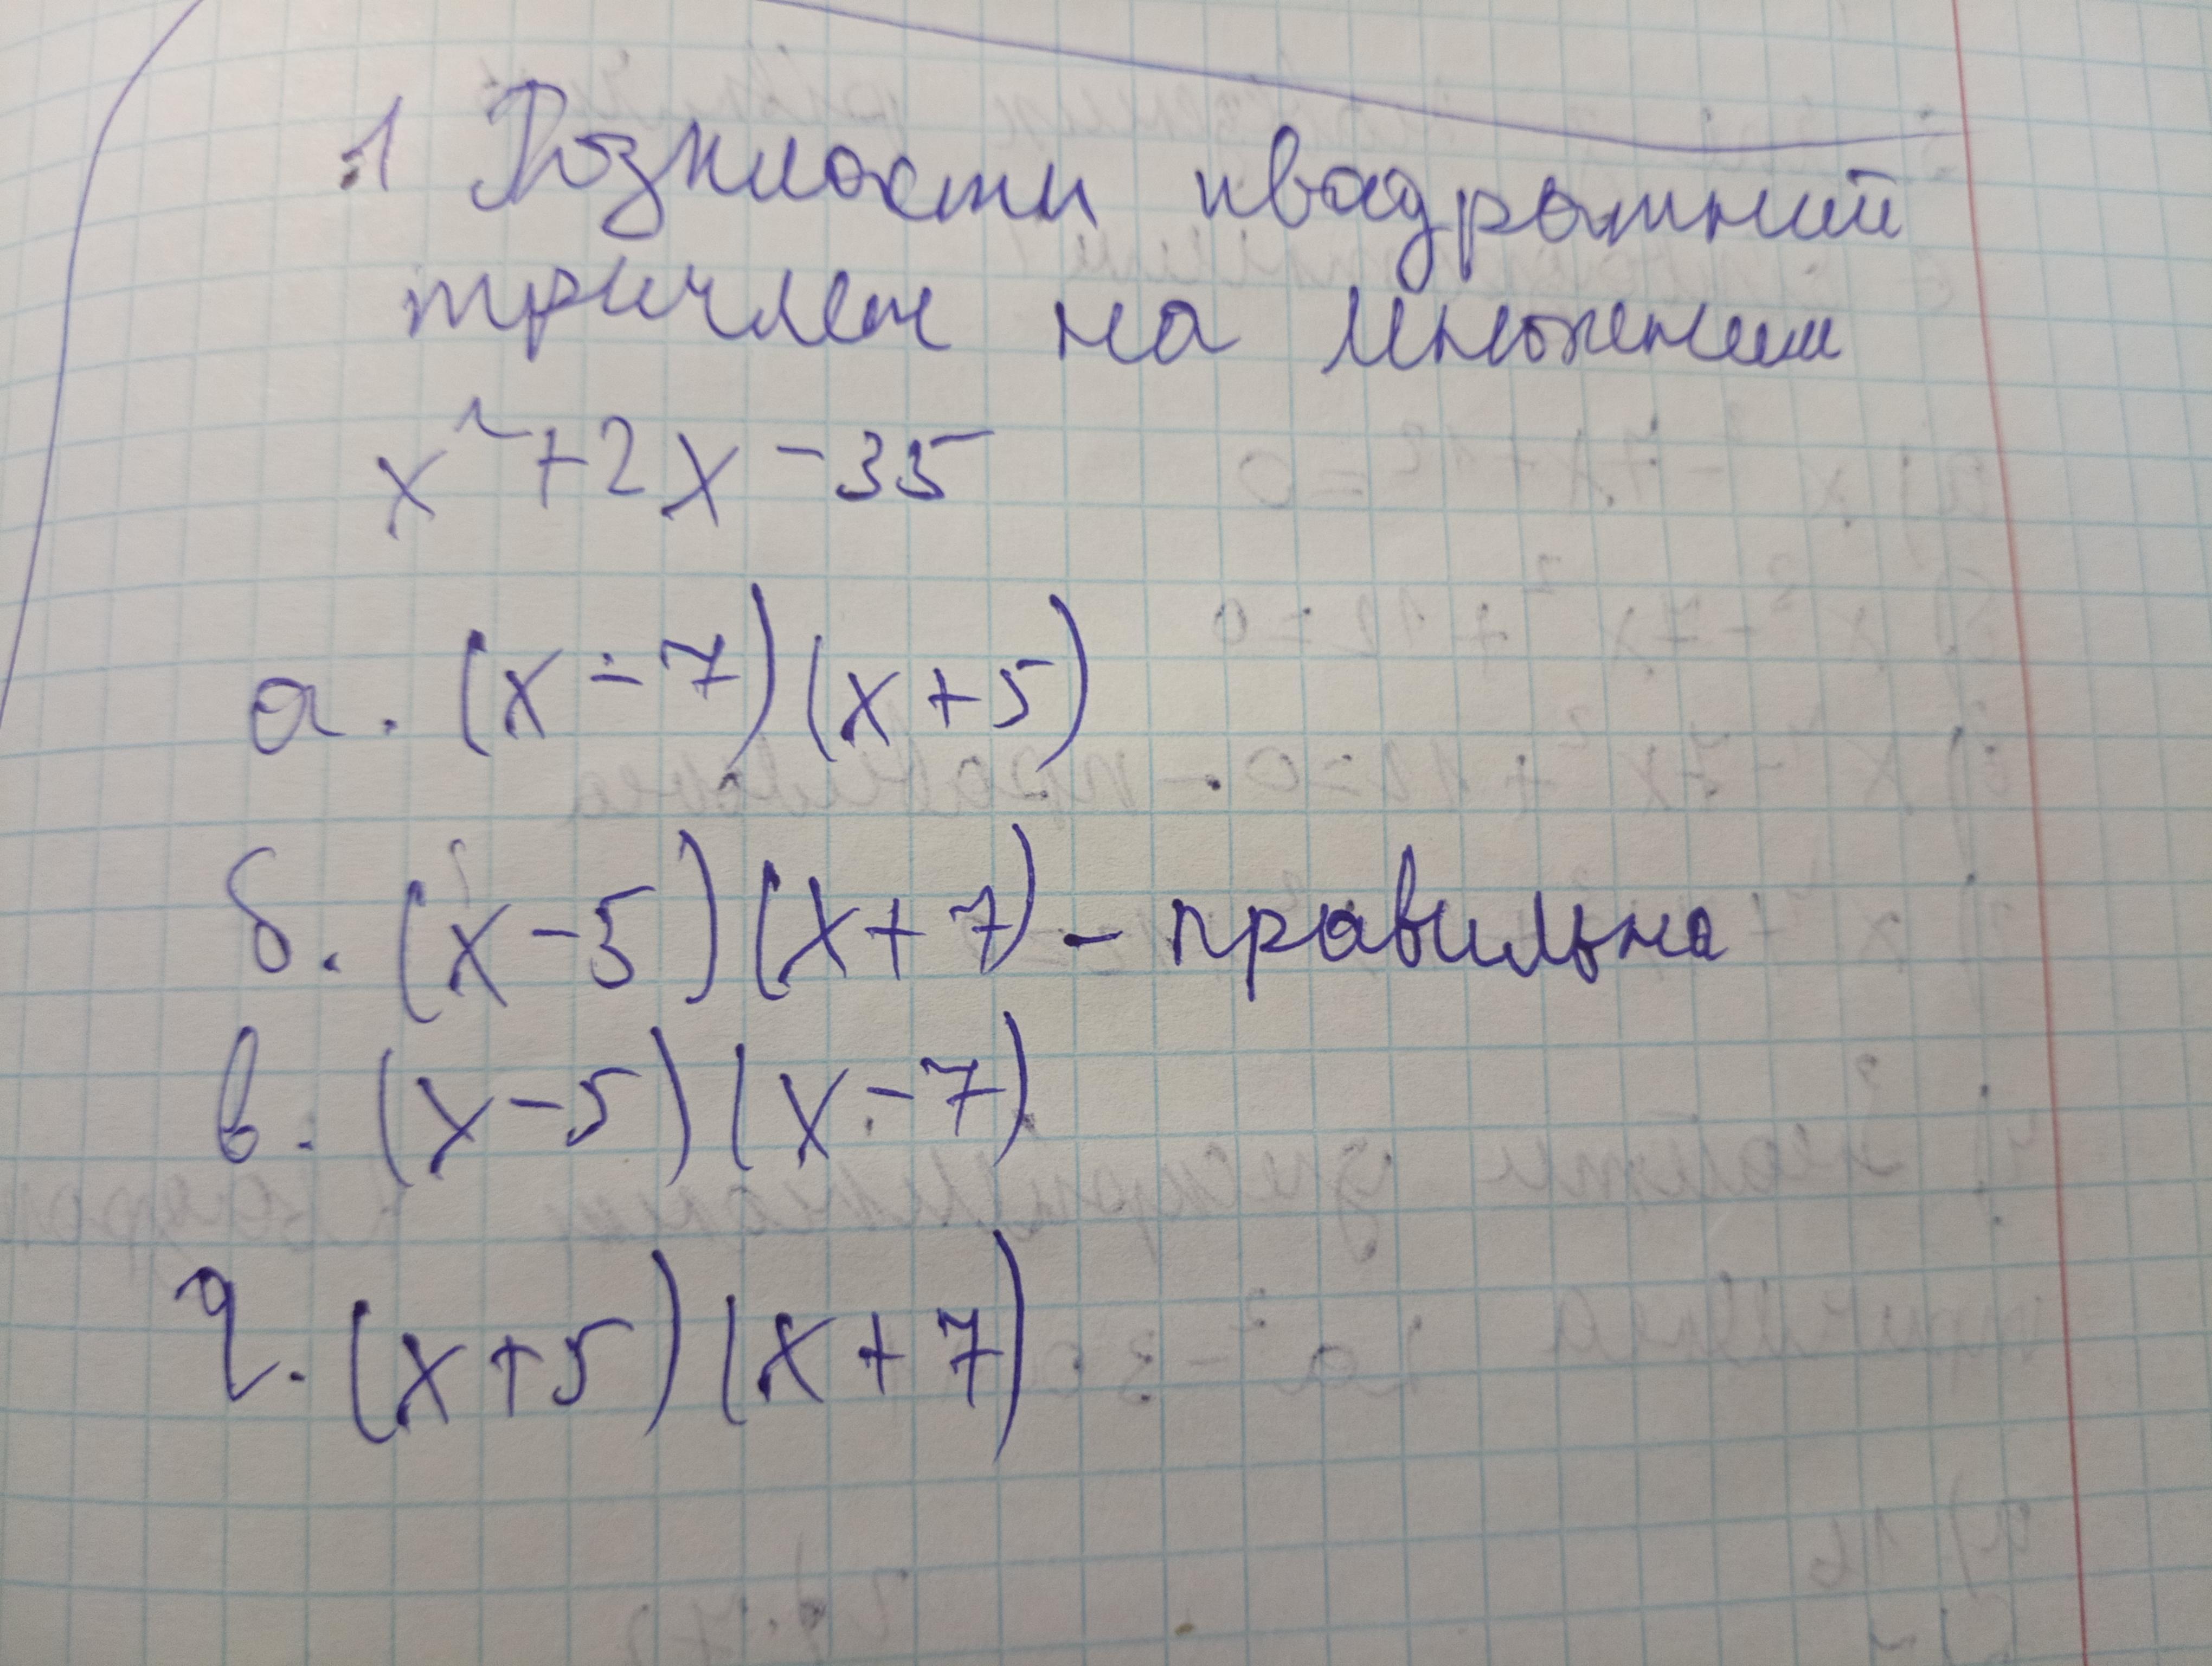 1 Розкласти квадратний
тричлен на множники
x²+2x-35
а. (x-7)(x+5)
б. (x-5)(x+7) - правильна
в. (x-5)(x-7)
г. (x+5)(x+7)